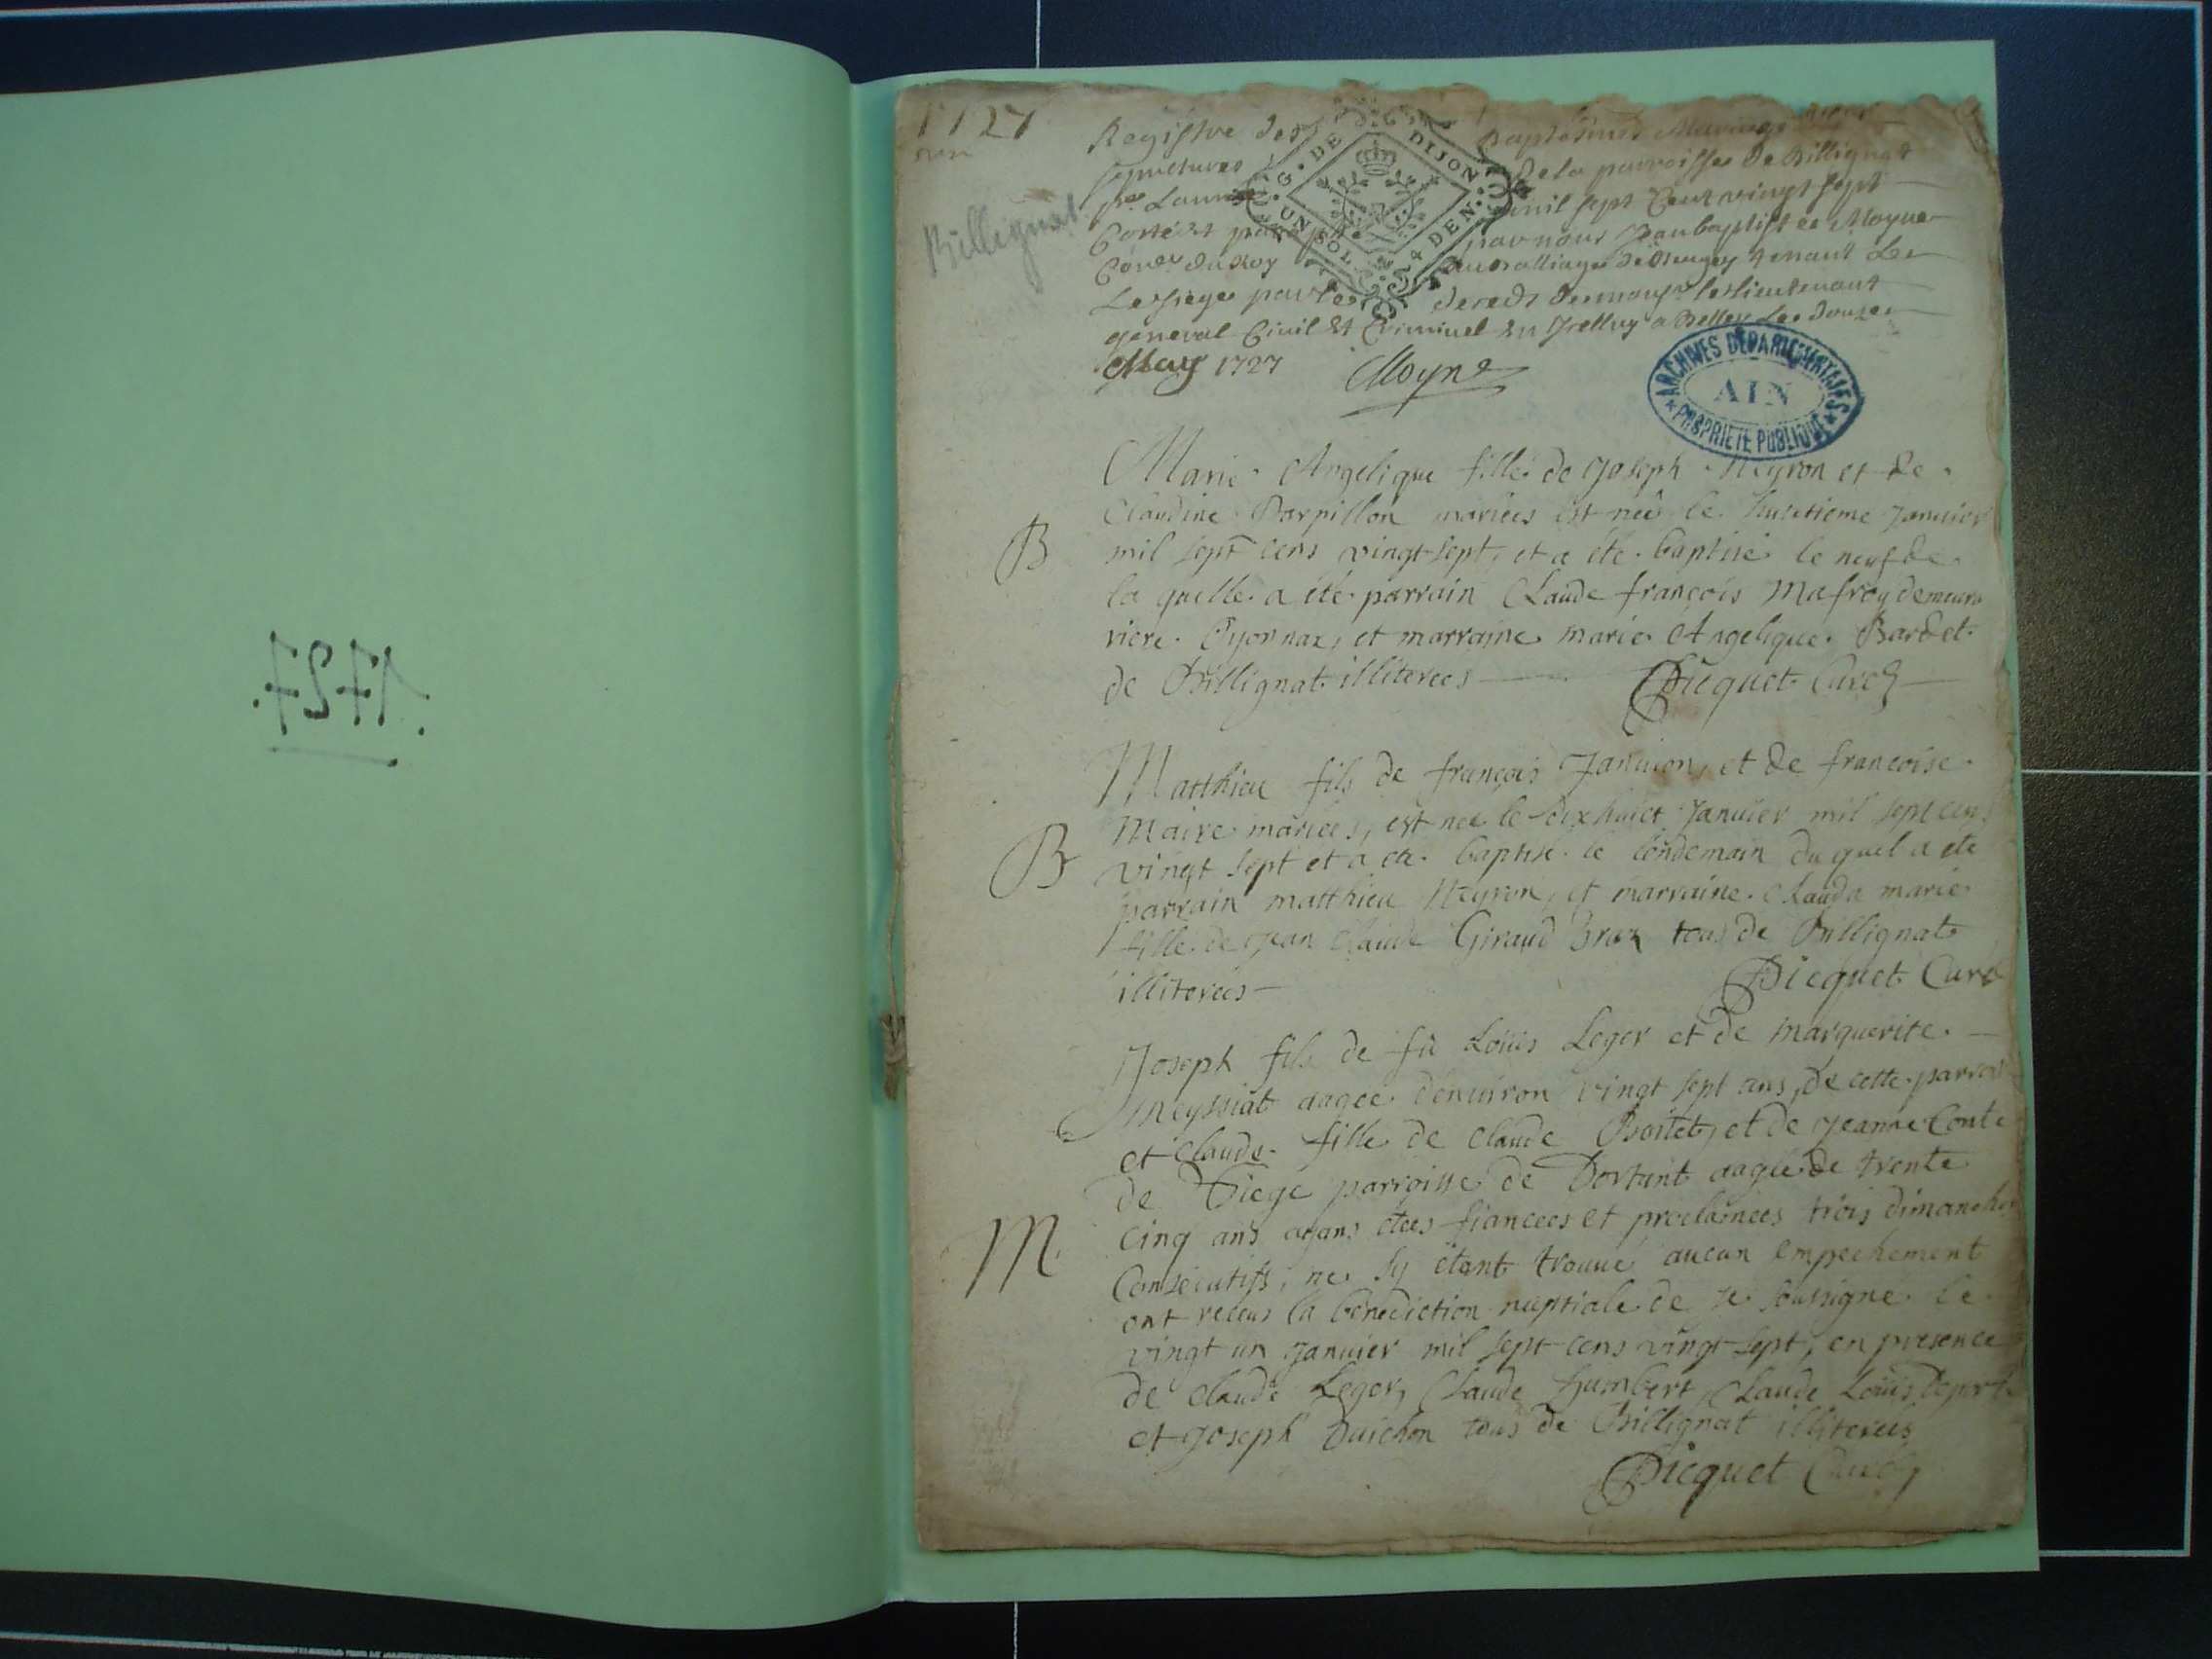 1727.
1727
Billignat
Registre des baptesmes Mariages
sepultures de la parroisse de Billignat
mil sept Cent vingt sept
par nous Jean baptiste Moyne
Coner du Roy au Balliage de Bugey tenant
Le siege lieutenant
general Civil et Criminel a Belley Le douze
May 1727 Moyne
G. DE DIJON
UN SOL 4 DEN.
ARCHIVES DÉPARTEMENTALES
AIN
PROPRIÉTÉ PUBLIQUE
Marie Angelique fille de Joseph Neyron et de
Claudine Barpillon mariées est née le huictieme Janvier
B
mil sept cens vingt sept, et a été baptisé le neuf de
la quelle a été parrain Claude françois Mafroy
Oyonnax, et marraine marie Angelique Bardet
de Billignat illiterees Picquet Curé
Matthieu fils de françois Janvion, et de francoise
Maire mariées, est née le dix huict Janvier mil sept cens
B
vingt sept et a été baptisé le lendemain du quel a été
parrain matthieu Neyron, et marraine Clauda marie
fille de Jean Claude Giraud tous de Billignat
illiterees
Picquet Curé
Joseph fils de fû Loüis Leger et de marguerite
meyssiat aagee denviron vingt sept ans, de cette
et Claude fille de Claude Boitet, et de Jeanne Conte
de parroisse de Dortant aagée de trente
M.
cinq ans ayans étées fiancees et proclamées trois dimanches
Consecutifs, ne sy étant trouvé aucun empechement
ont receus la benediction nuptiale de je soussigné le
vingt un Janvier mil sept cens vingt sept, en presence
de Claude Leger, Claude humbert, Claude Loüis
et Joseph Duichon tous de Billignat illiterees
Picquet Curé